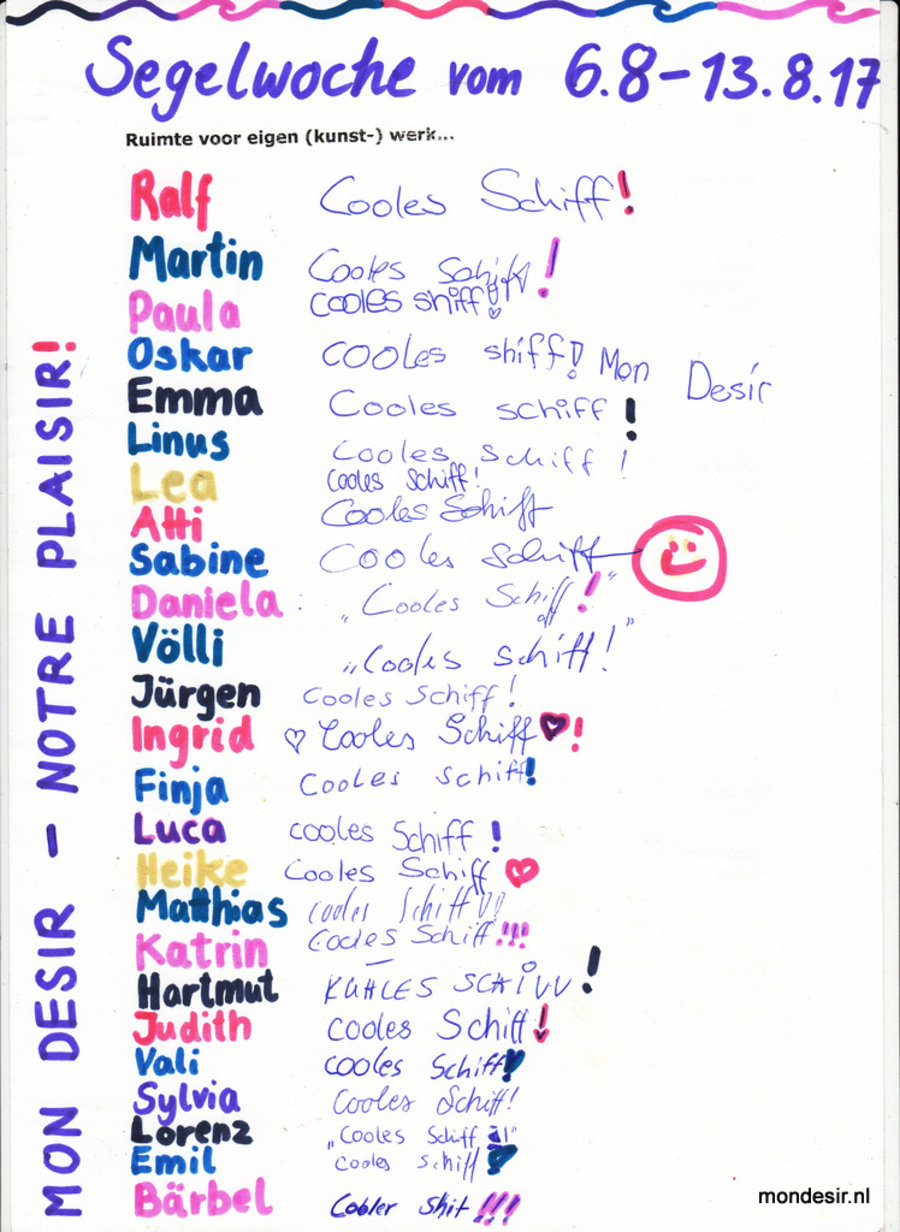 Segelwoche vom 6.8-13.8.17
Ruimte voor eigen (kunst-) werk...
MON DESIR - NOTRE PLAISIR!
Ralf Cooles Schiff!
Martin Cooles Schiff!
Paula cooles shiff!
Oskar cooles shiff! Mon Desir
Emma Cooles schiff!
Linus Cooles schiff!
Lea Cooles Schiff!
Atti Cooles Schiff
Sabine Cooles Schiff
Daniela: „Cooles Schiff!“
Völli „Cooles Schiff!“
Jürgen Cooles Schiff!
Ingrid ♡ Cooles Schiff♥!
Finja Cooles schiff!
Luca cooles Schiff!
Heike Cooles Schiff ♡
Matthias cooles Schiff!!
Katrin Cooles Schiff!!!
Hartmut KUHLES SCHiVV!
Judith cooles Schiff!
Vali cooles Schiff!
Sylvia Cooles Schiff!
Lorenz „Cooles Schiff !“
Emil cooles schiff
Bärbel Cobler Shit!!!
mondesir.nl